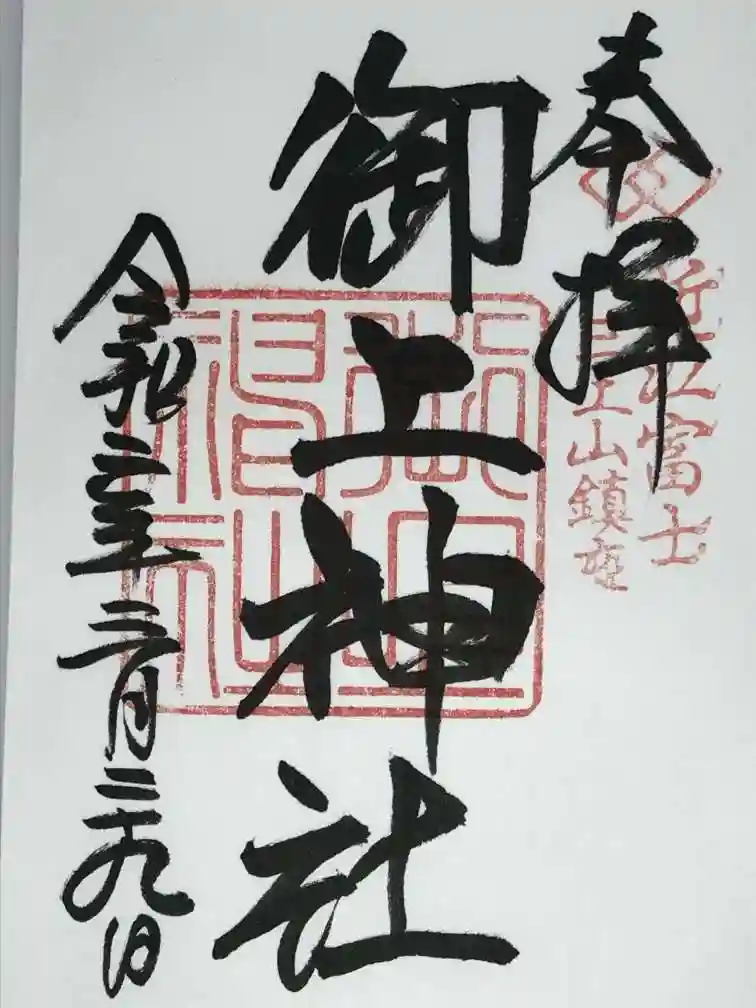 奉拝
近江富士
三上山鎮座
御上神社
御上神社
令和二年三月二十九日